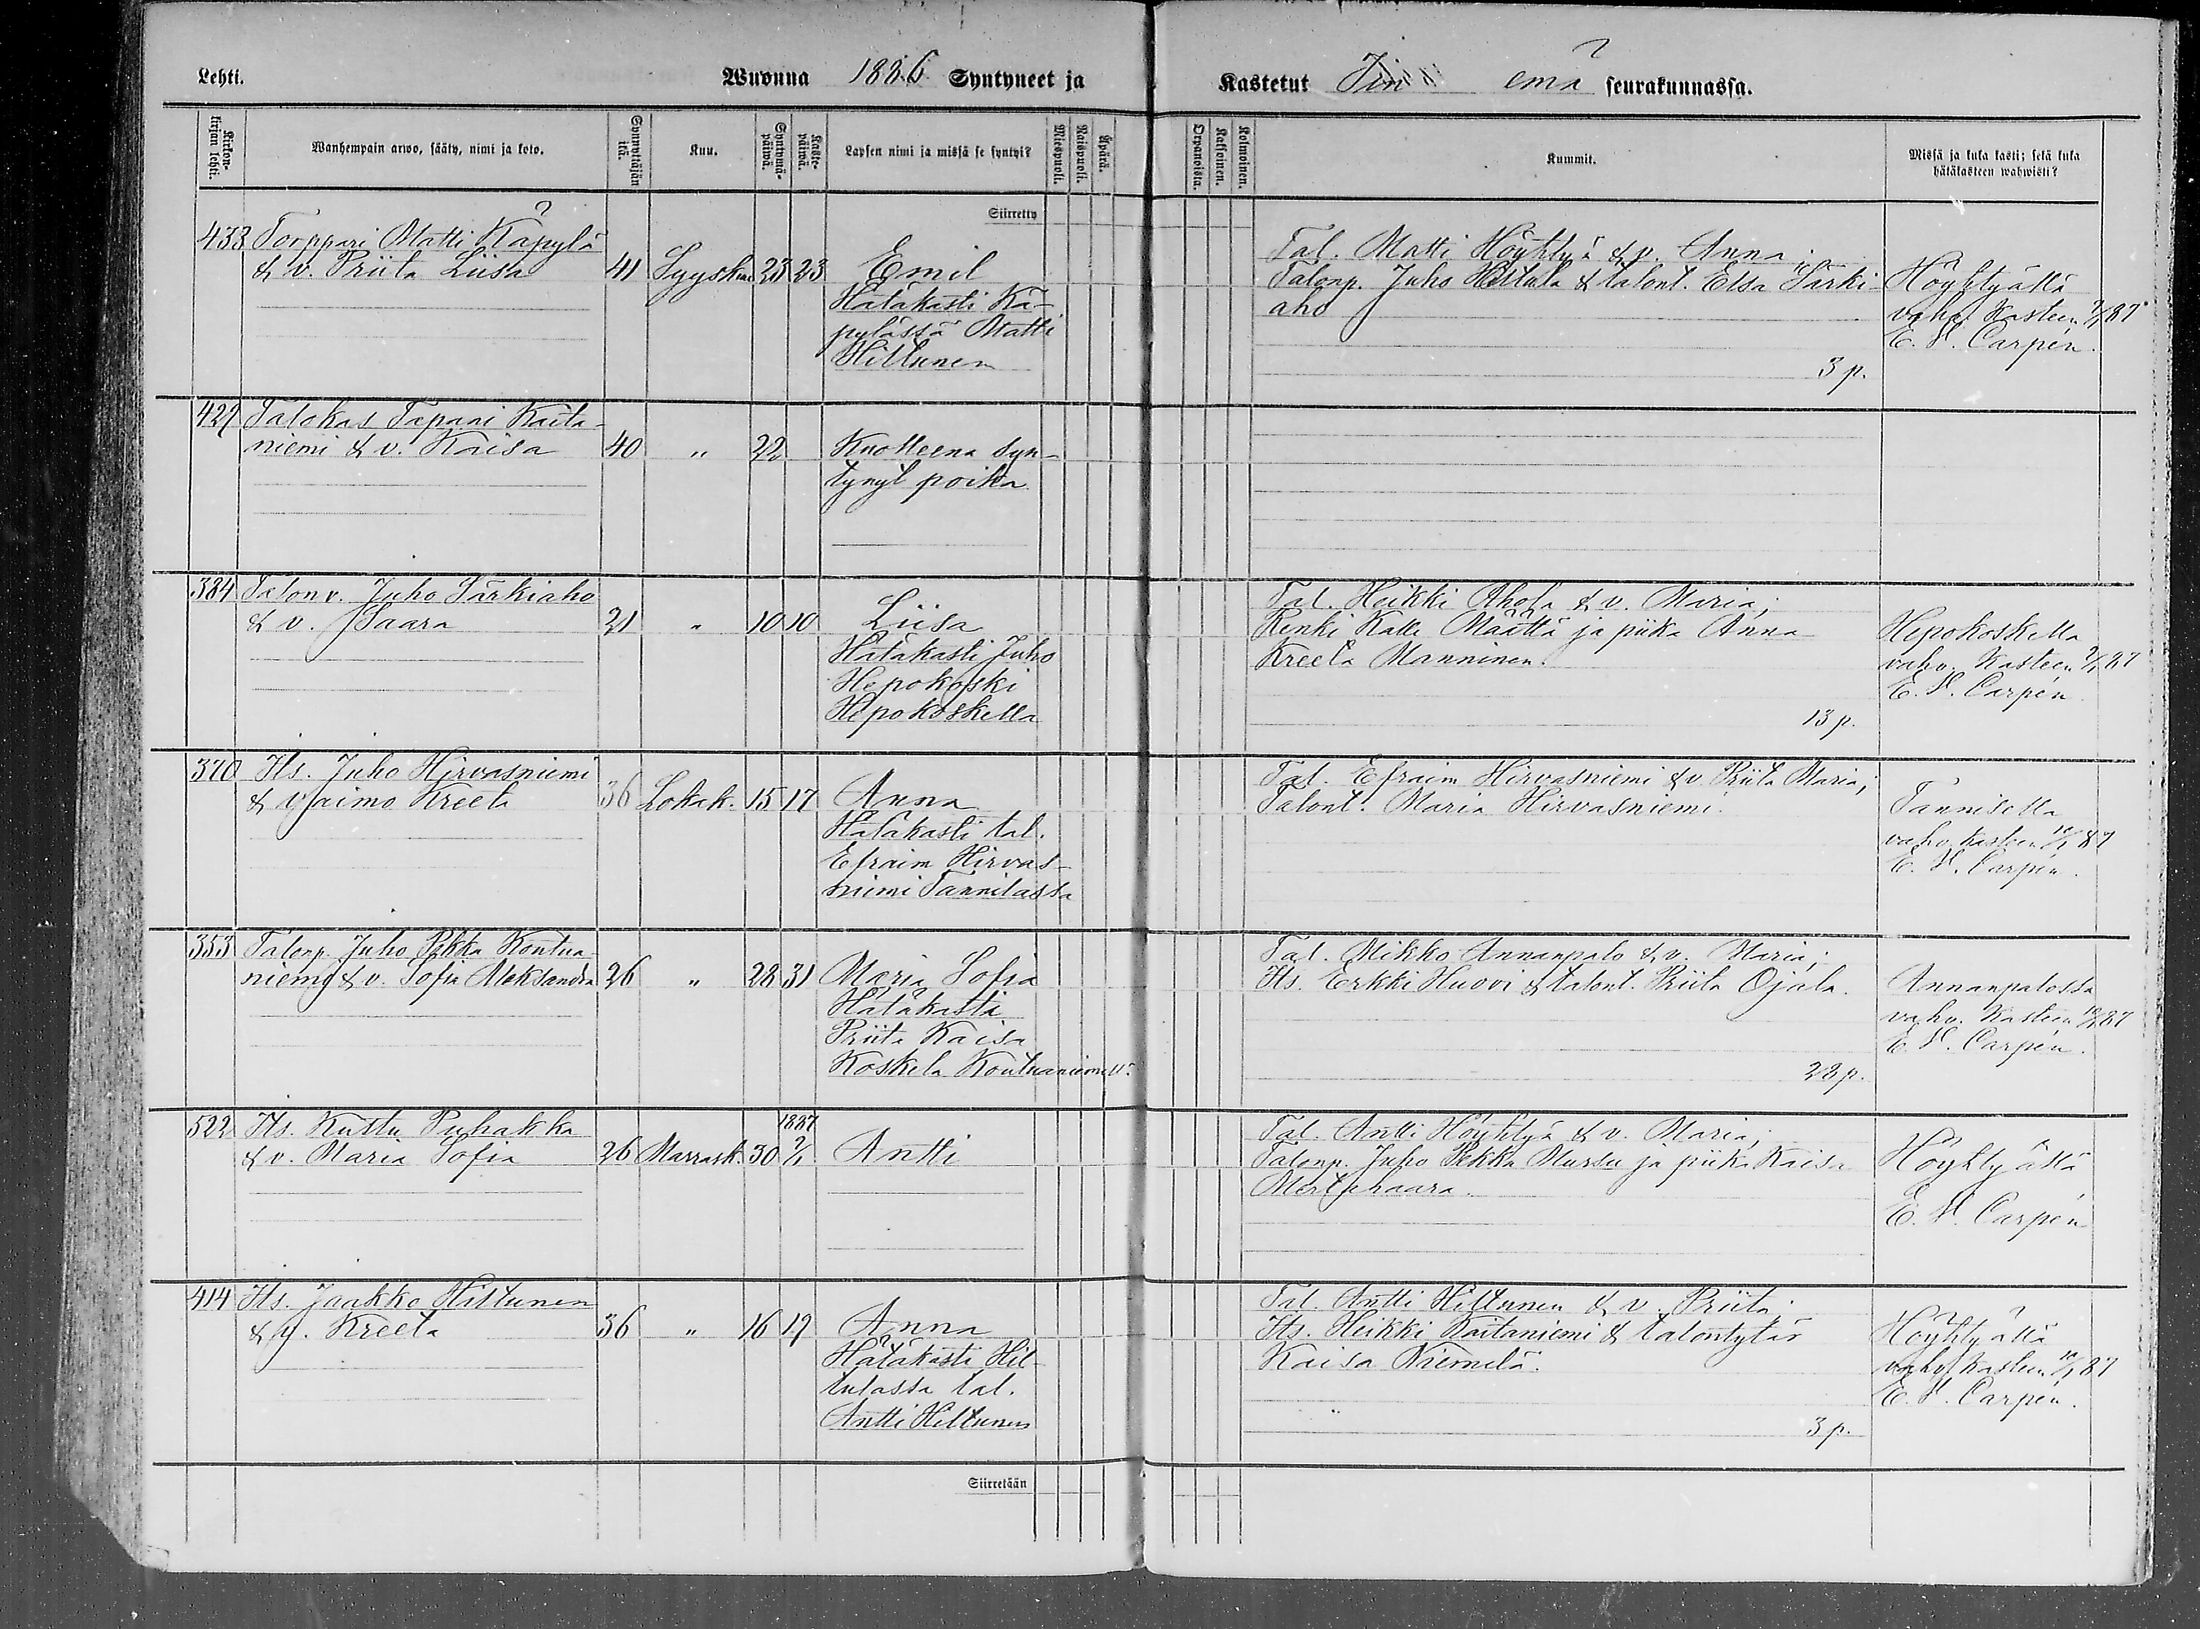 Lehti. Wuonna 1886 Syntyneet ja Kastetut Iin emä seurakunnassa.
Kirkon-kirjan lehti. Wanhempain arwo, sääty, nimi ja koto. Synnyttäjän ikä. Kuu. Syntymä-päiwä. Kaste-päiwä. Lapsen nimi ja missä se syntyi? Miespuoli. Naispuoli. Äpärä. Orpanoista. Kaksoinen. Kolmoinen. Kummit. Missä ja kuka kasti; sekä kuka hätäkasteen wahwisti?
Siirretty
433 Torppari Matti Käpylä
& v. Priita Liisa 41 Syysk. 23 23 Emil
Hätäkasti Kä-
pylässä Matti
Hiltunen
Tal. Matti Höyhtyä & v. Anna;
Talonp. Juho Hiltula & talont. Elsa Särki-
aho
3 p.
Höyhtyällä
vahv. Kasteen 7/1 87
E. V. Carpén.
427 Talokas Tapani Kaita-
niemi & v. Kaisa 40 " 22 Kuolleena syn-
tynyt poika
384 Talonv. Juho Särkiaho
& v. Saara 21 " 10 10 Liisa
Hätäkasti Juho
Hepokoski
Hepokoskella
Tal. Heikki Ahola & v. Maria;
Renki Kalle Määttä ja piika Anna
Kreeta Manninen.
13 p.
Hepokoskella
vahv. Kasteen 7/1 87
E. V. Carpén
370 Its. Juho Hirvasniemi
& vaimo Kreeta 36 Lokak. 15 17 Anna
Hätäkasti tal.
Efraim Hirvas-
niemi Tannilassa
Tal. Efraim Hirvasniemi & v. Priita Maria;
Talont. Maria Hirvasniemi.
Tannilella
vahv. kasteen 10/1 87
E. V. Carpén.
353 Talonp. Juho Pekka Kontua-
niemi & v. Sofia Aleksandra 26 " 28 31 Maria Sofia
Hätäkasti
Priita Kaisa
Koskela Kontuaniem.
Tal. Mikko Annanpalo & v. Maria;
Its. Erkki Huovi & talont. Priita Ojala.
28 p.
Annanpalossa
vahv. Kasteen 10/1 87
E. V. Carpén.
1887
522 Its. Kustu Puhakka
& v. Maria Sofia 26 Marrask. 30 7/1 Antti
Tal. Antti Höyhtyä & v. Maria;
Talonp. Juho Pekka Mursu ja piika Kaisa
Mertahaara.
Höyhtyällä
E. V. Carpén
414 Its. Jaakko Hiltunen
& v. Kreeta 36 " 16 19 Anna
Hätäkasti Hil-
tulassa tal.
Antti Hiltunen
Tal. Antti Hiltunen & v. Priita;
Its. Heikki Kaitaniemi & talontytär
Kaisa Niemelä.
"
3 p.
Höyhtyällä
vahv. kasteen 10/1 87
E. V. Carpén.
Siirretään